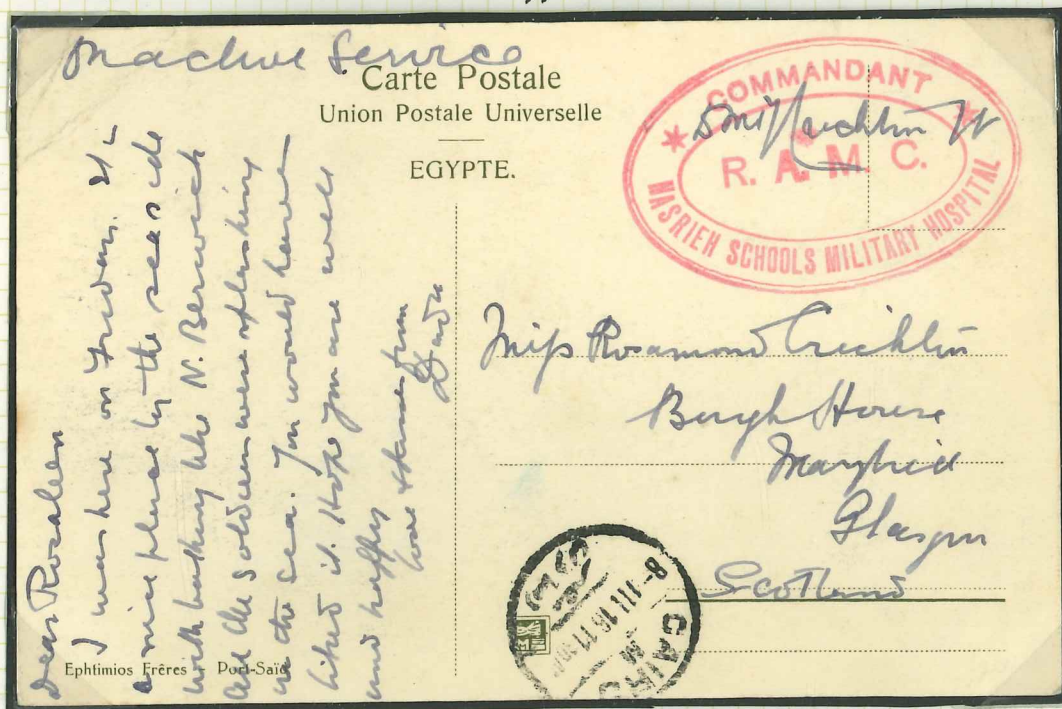 Service
Carte Postale
Union Postale Universelle
EGYPTE.
COMMANDANT
R. A. M. C.
NASRIEH SCHOOLS MILITARY HOSPITAL
Dear Rosaleen
I was here on Friday. It
a nice place by the sea side
with bathing like N. Berwick
all the soldiers were splashing
in the sea. You would have
liked it. Hope you are well
and happy
Love &
Dada
Miss Rosamond Crichton
Burgh House
Maryhill
Glasgow
Scotland
8-III 16 11
CAIRO
Ephtimios Frêres Port-Saïd